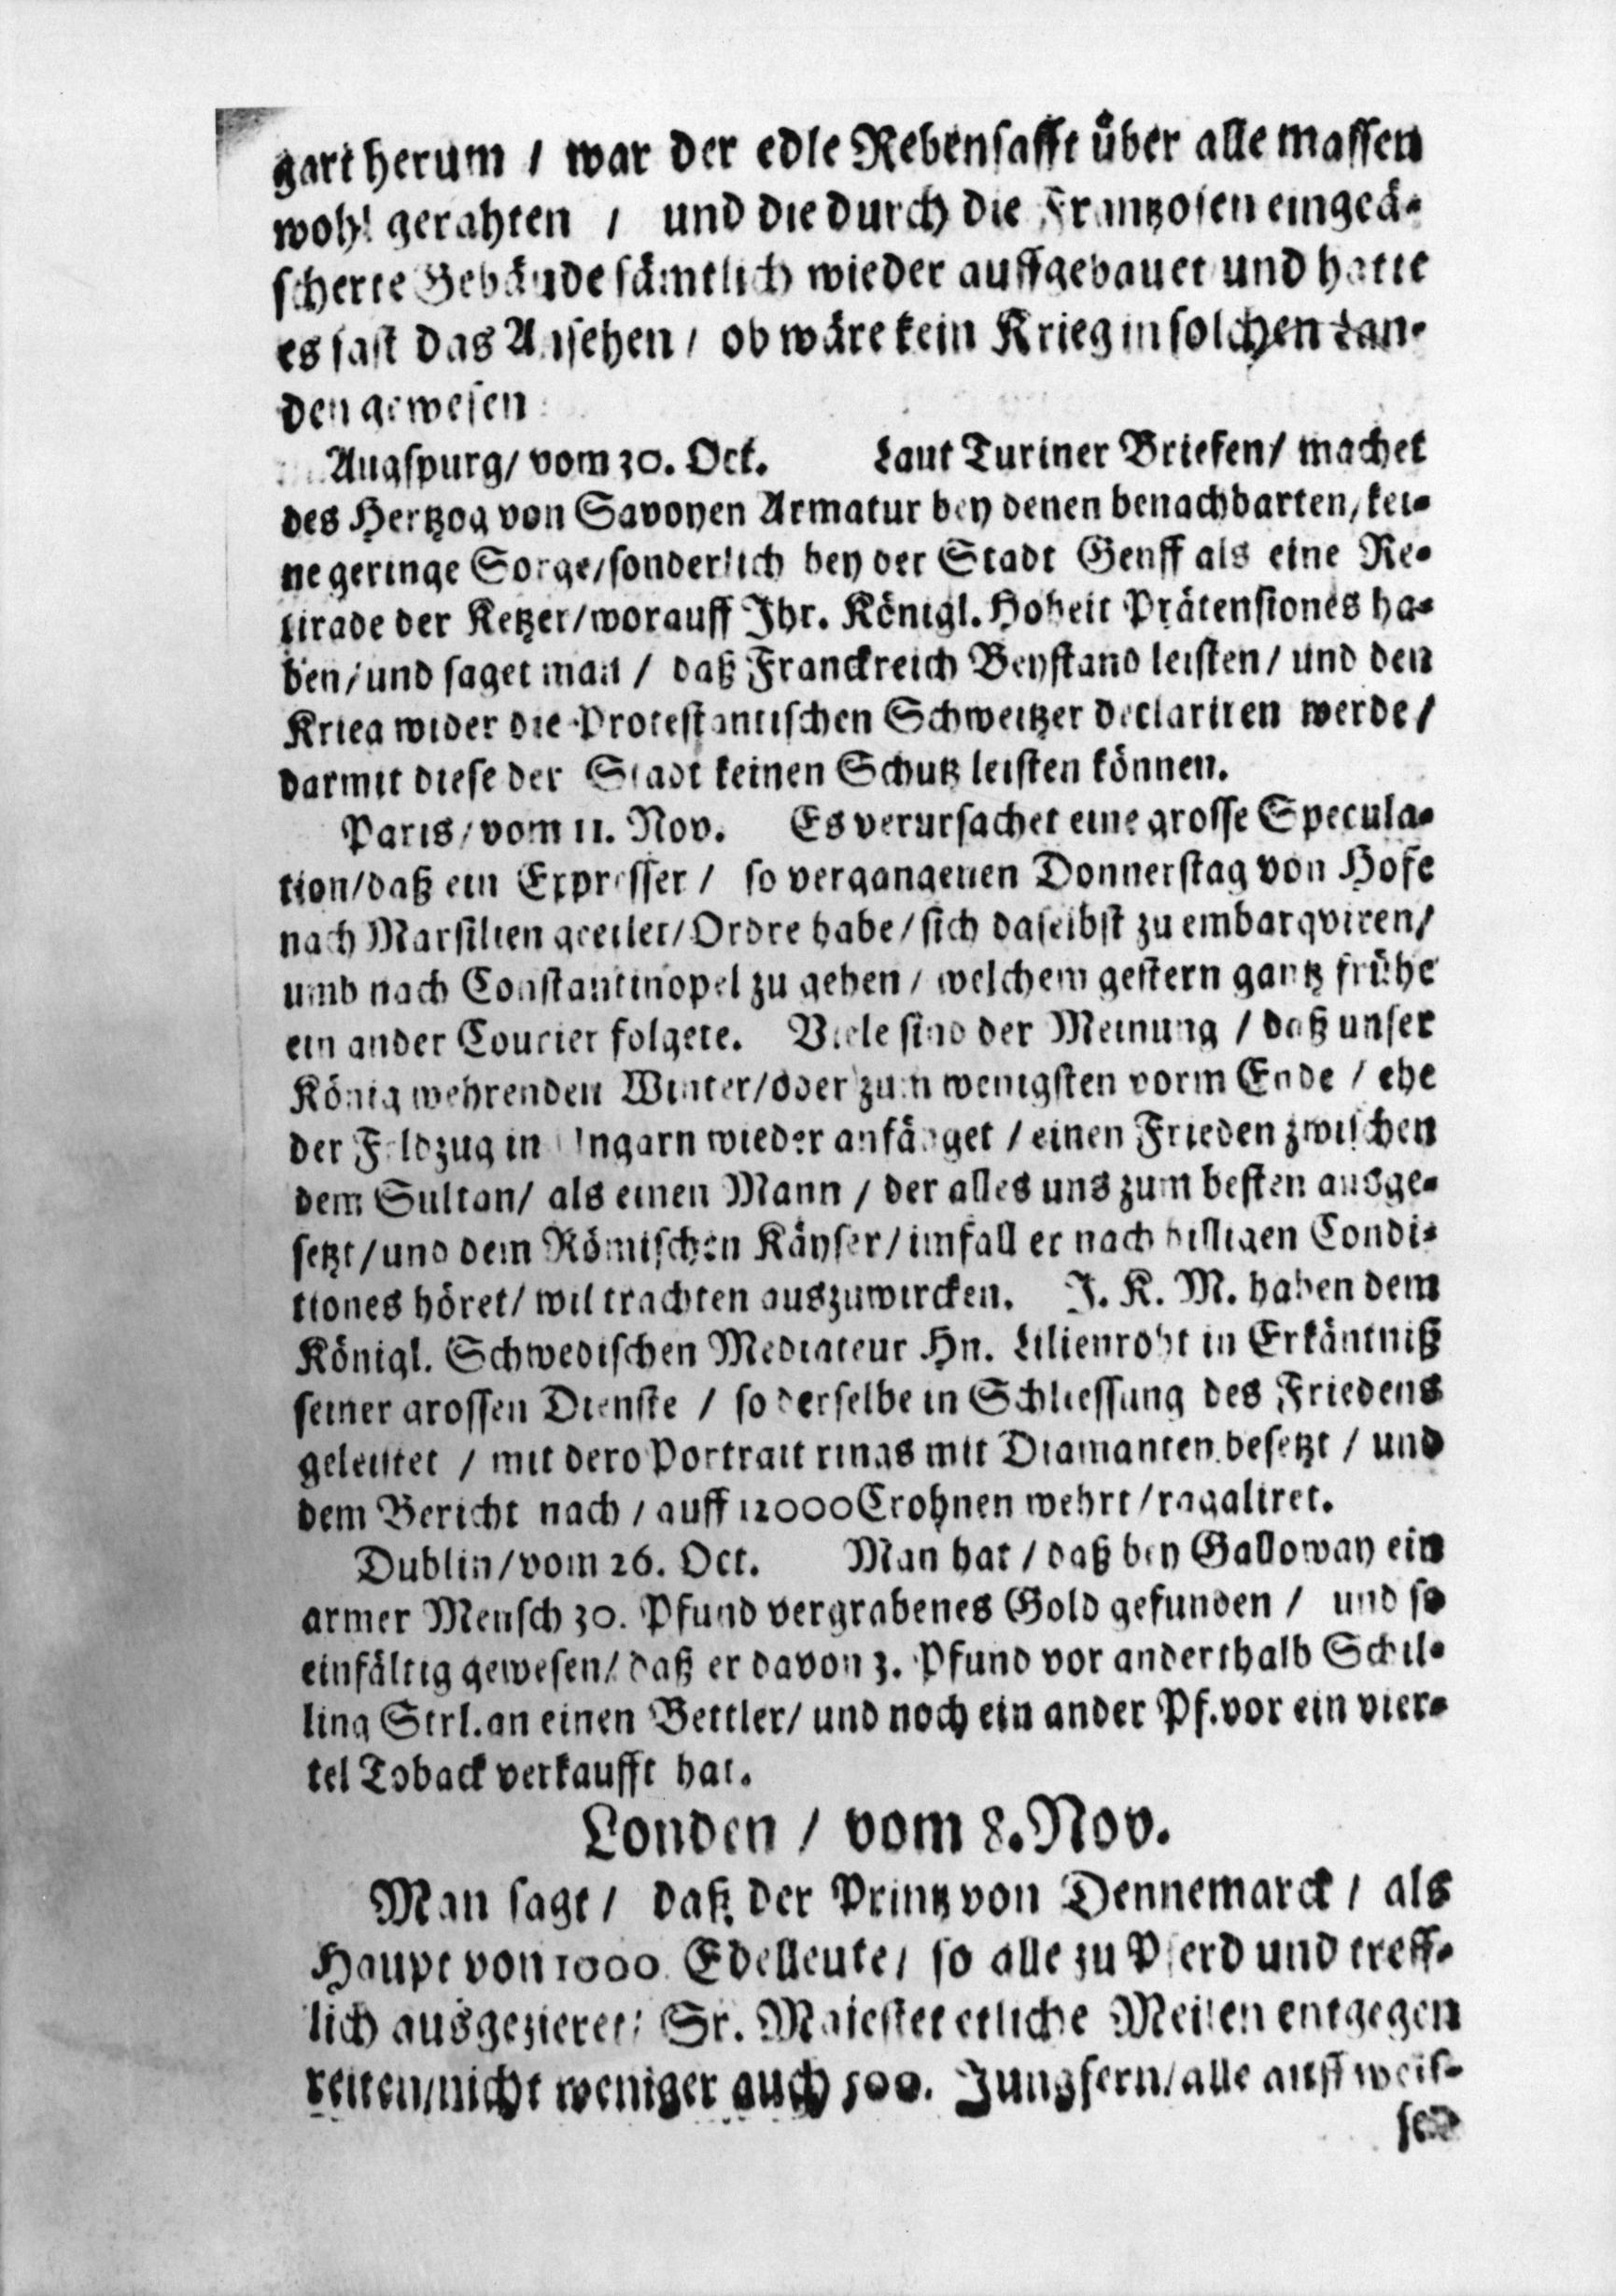 gart herum / war der edle Rebensafft über alle massen
wohl gerahten / und die durch die Frantzosen eingeä-
scherte Gebäude sämtlich wieder auffgebauet und hatte
es fast das Ansehen / ob wäre kein Krieg in solchen Lan-
den gewesen
Augspurg / vom 30. Oct. Laut Turiner Briefen / machet
des Hertzog von Savoyen Armatur bey denen benachbarten / kei-
ne geringe Sorge / sonderlich bey der Stadt Genff als eine Re-
tirade der Ketzer / worauff Ihr. Königl. Hoheit Prätensiones ha-
ben / und saget man / daß Franckreich Beystand leisten / und den
Krieg wider die Protestantischen Schweitzer declariren werde /
darmit diese der Stadt keinen Schutz leisten können.
Paris / vom 11. Nov. Es verursachet eine grosse Specula-
tion / daß ein Expresser / so vergangenen Donnerstag von Hofe
nach Marsilien geeilet / Ordre habe / sich daselbst zu embarqviren /
umb nach Constantinopel zu gehen / welchem gestern gantz frühe
ein ander Courier folgete. Viele sind der Meinung / daß unser
König wehrenden Winter / oder zum wenigsten vorm Ende / ehe
der Feldzug in Ungarn wieder anfänget / einen Frieden zwischen
dem Sultan / als einen Mann / der alles uns zum besten ausge-
setzt / und dem Römischen Käyser / imfall er nach billigen Condi-
tiones höret / wil trachten auszuwircken. J. K. M. haben dem
Königl. Schwedischen Mediateur Hn. Lilienroht in Erkäntniß
seiner grossen Dienste / so derselbe in Schliessung des Friedens
geleistet / mit dero Portrait rings mit Diamanten besetzt / und
dem Bericht nach / auff 12000 Crohnen wehrt / ragaliret.
Dublin / vom 26. Oct. Man hat / daß bey Galloway ein
armer Mensch 30. Pfund vergrabenes Gold gefunden / und so
einfältig gewesen / daß er davon 3. Pfund vor anderthalb Schil-
ling Strl. an einen Bettler / und noch ein ander Pf. vor ein vier-
tel Toback verkaufft hat.
Londen / vom 8. Nov.
Man sagt / daß der Printz von Dennemarck / als
Haupt von 1000 Edelleute / so alle zu Pferd und treff-
lich ausgezieret / Sr. Majestet etliche Meilen entgegen
reiten / nicht weniger auch 500. Jungfern / alle auff weis-
sen